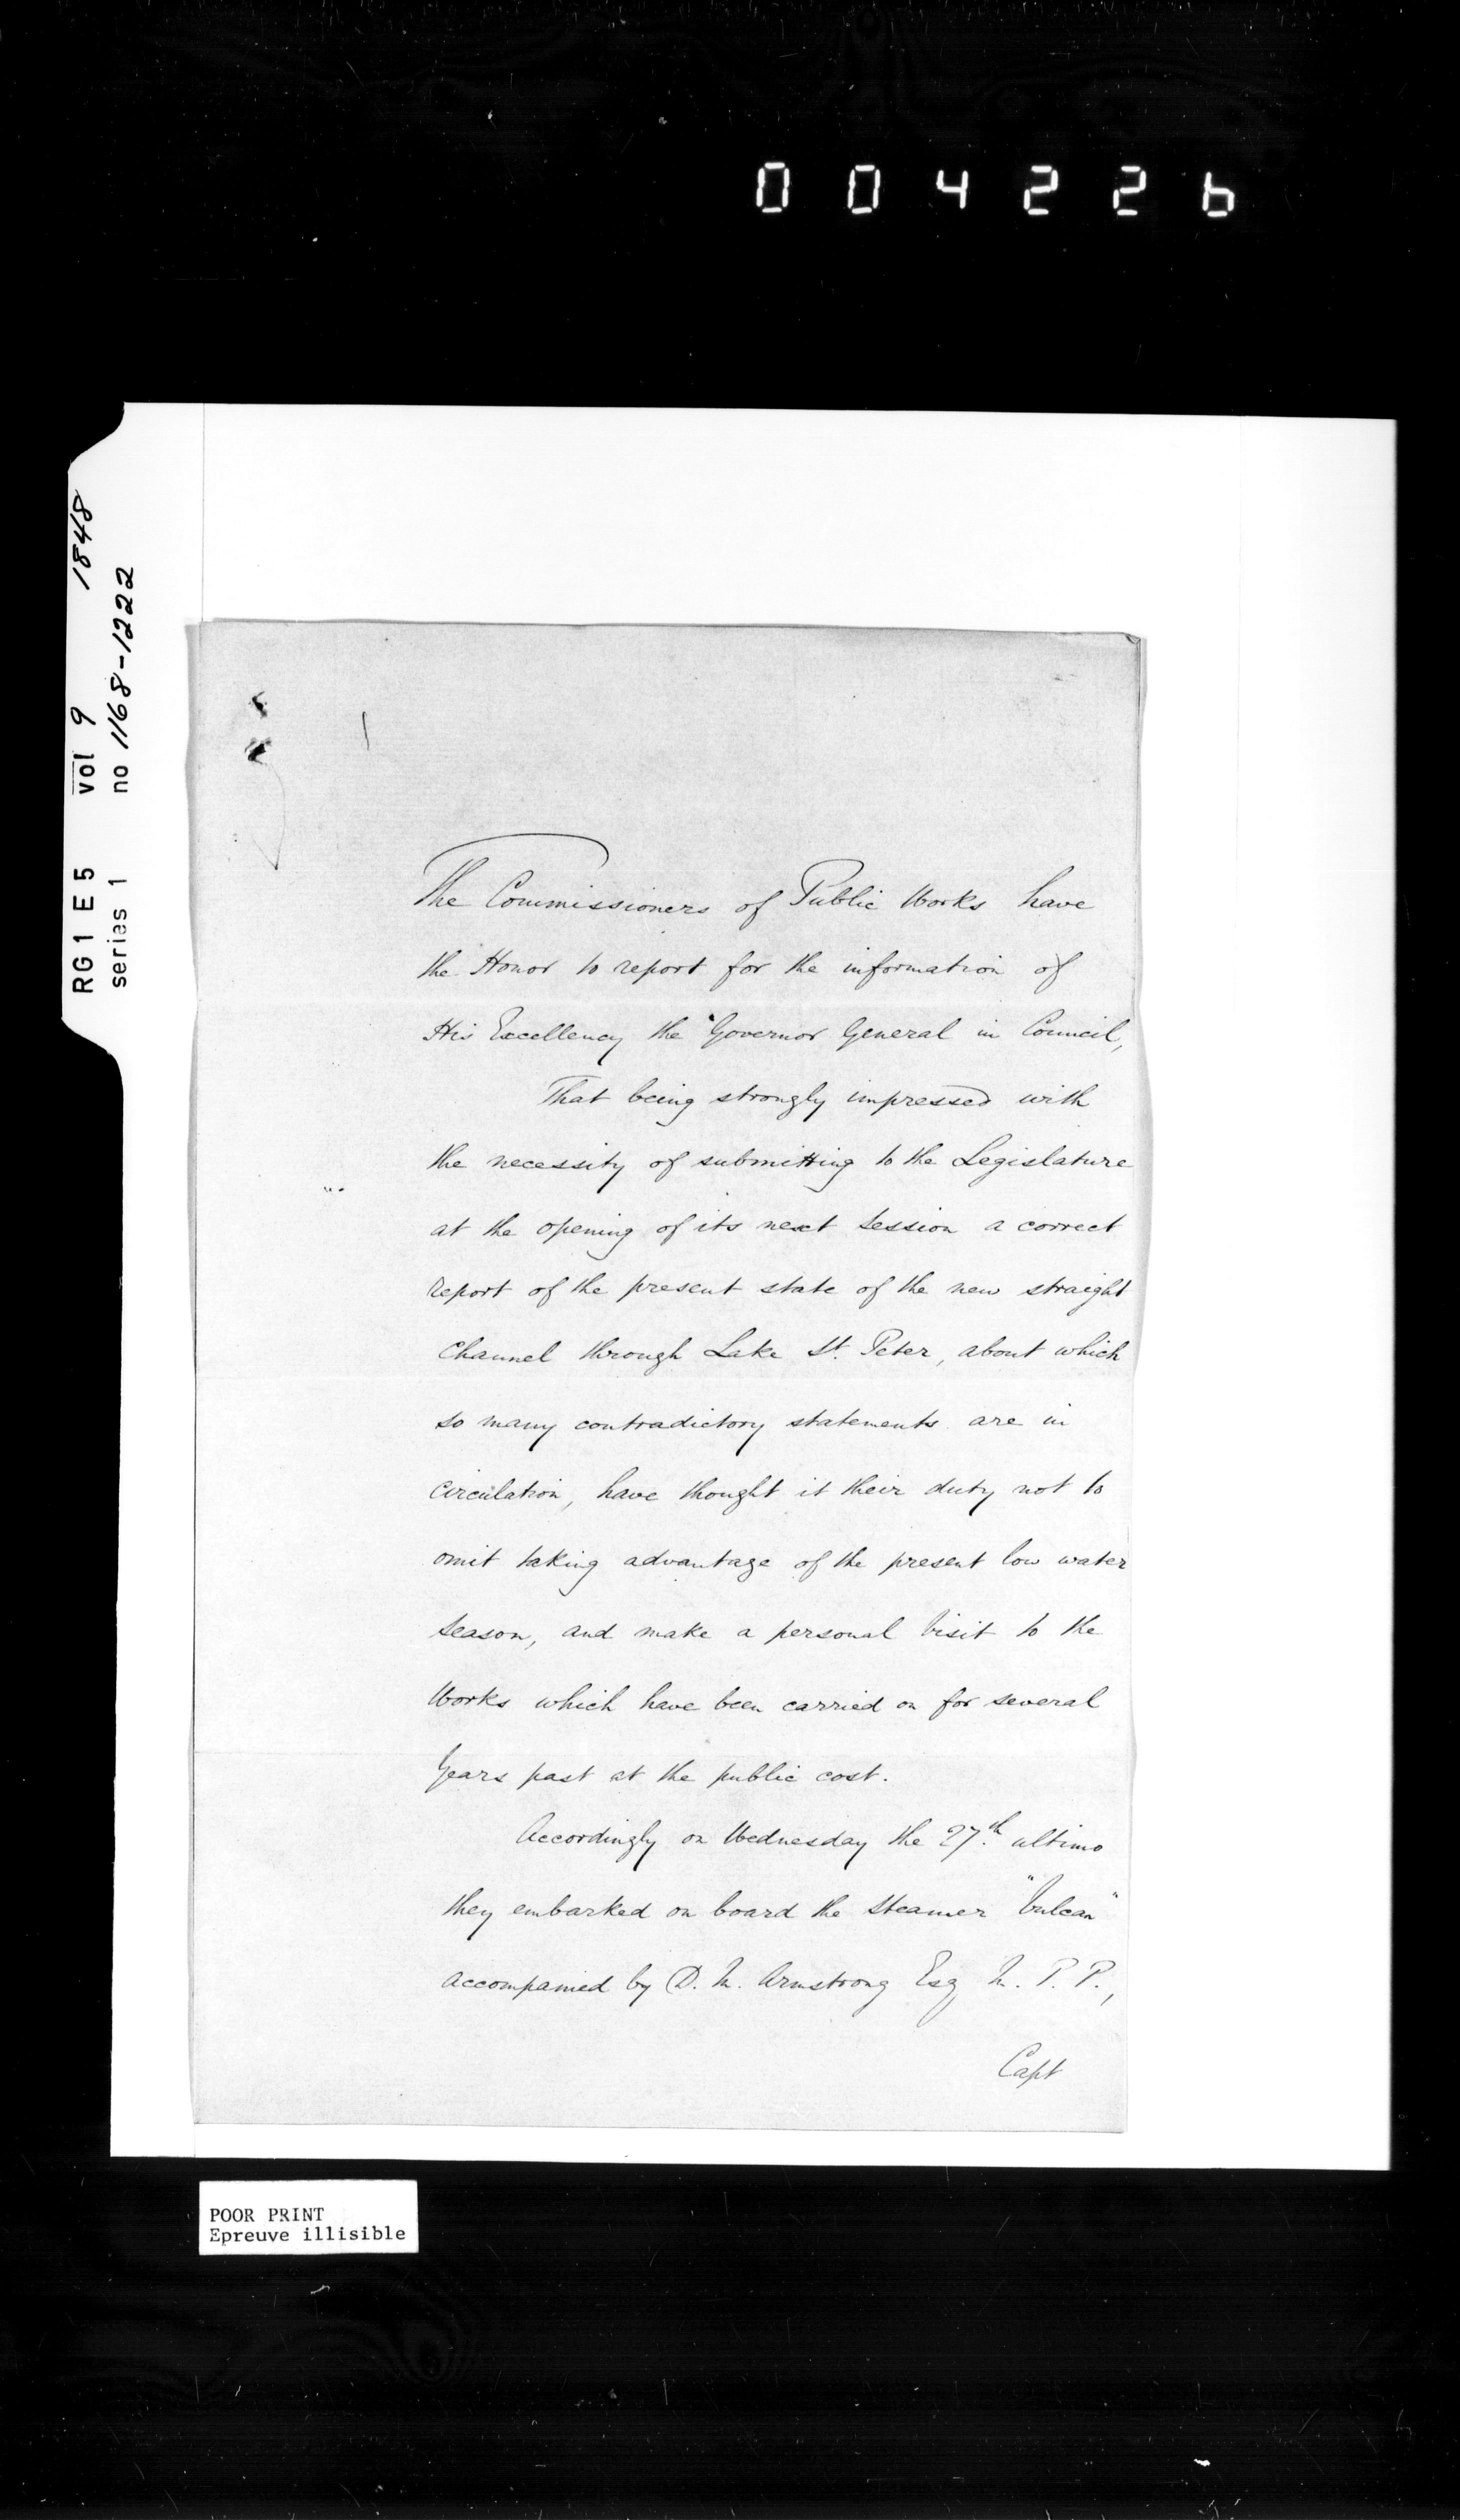 004226
RG1 E5 vol 9 1848
series 1 no 1168-1222
The Commissioners of Public Works have
the Honor to report for the information of
His Excellency the Governor General in Council,
That being strongly impressed with
the necessity of submitting to the Legislature
at the opening of its next Session a correct
report of the present state of the new straight
Channel through Lake St. Peter, about which
so many contradictory statements are in
circulation, have thought it their duty not to
omit taking advantage of the present low water
season, and make a personal visit to the
Works which have been carried on for several
Years past at the public cost.
Accordingly on Wednesday the 27th. ultimo
they embarked on board the Steamer "Vulcan"
accompanied by D. M. Armstrong Esq M. P. P.,
Capt
POOR PRINT
Epreuve illisible